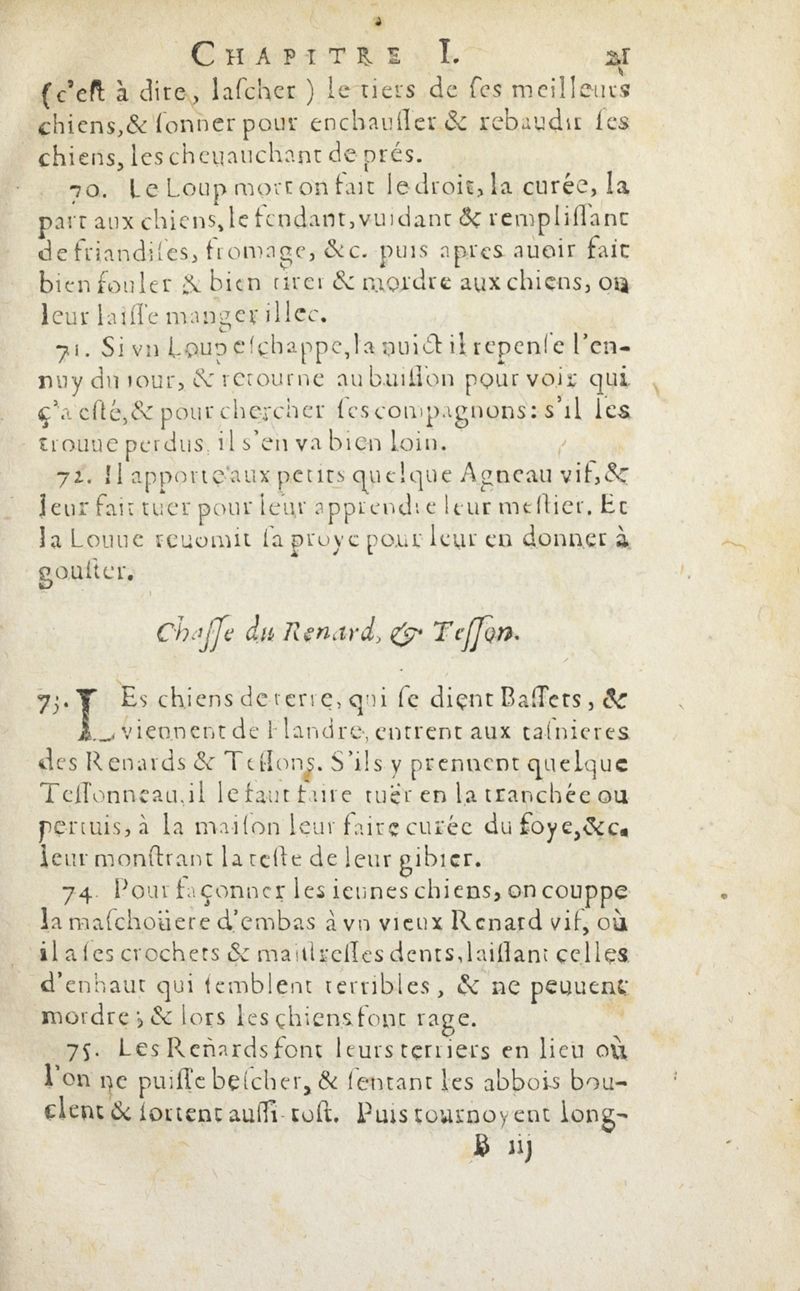 CHAPITRE I. 21
(c'eſt à dire, laſcher ) le tiers de ſes meilleurs
chiens,& ſonner pour enchauſſer & rebaudir ſes
chiens, les cheuauchant de prés.
70. Le Loup mort on fait le droit, la curée, la
part aux chiens, le fendant, vuidant & rempliſſant
de friandiſes, fromage, &c. puis apres auoir fait
bien fouler & bien tirer & mordre aux chiens, on
leur laiſſe manger illec.
71. Si vn Loup eſchappe, la nuict il repenſe l'en-
nuy du iour, & retourne au buiſſon pour voir qui
ç'a eſté, & pour chercher ſes compagnons: s'il les
trouue perdus, il s'en va bien loin.
72. Il apporte aux petits quelque Agneau vif, &
leur fait tuer pour leur apprendre leur meſtier. Et
la Louue reuomit ſa proye pour leur en donner à
gouſter.
Chaſſe du Renard, & Teſſon.
73. LEs chiens de terre, qui ſe diẹnt Baſſets, &
viennent de Flandre, entrent aux taſnieres
des Renards & Teſſons. S'ils y prennent quelque
Teſſonneau, il le faut faire tuër en la tranchée ou
pertuis, à la maiſon leur faire curée du foye, &c.
leur monſtrant la teſte de leur gibier.
74. Pour façonner les ieunes chiens, on couppe
la maſchoüere d'embas à vn vieux Renard vif, où
il a ſes crochets & maiſtreſſes dents, laiſſant celles
d'enhaut qui ſemblent terribles, & ne peuuent
mordre; & lors les chiens font rage.
75. Les Renards font leurs terriers en lieu où
l'on ne puiſſe beſcher, & ſentant les abbois bou-
clent & ſortent auſſi-toſt. Puis tournoyent long-
B iij